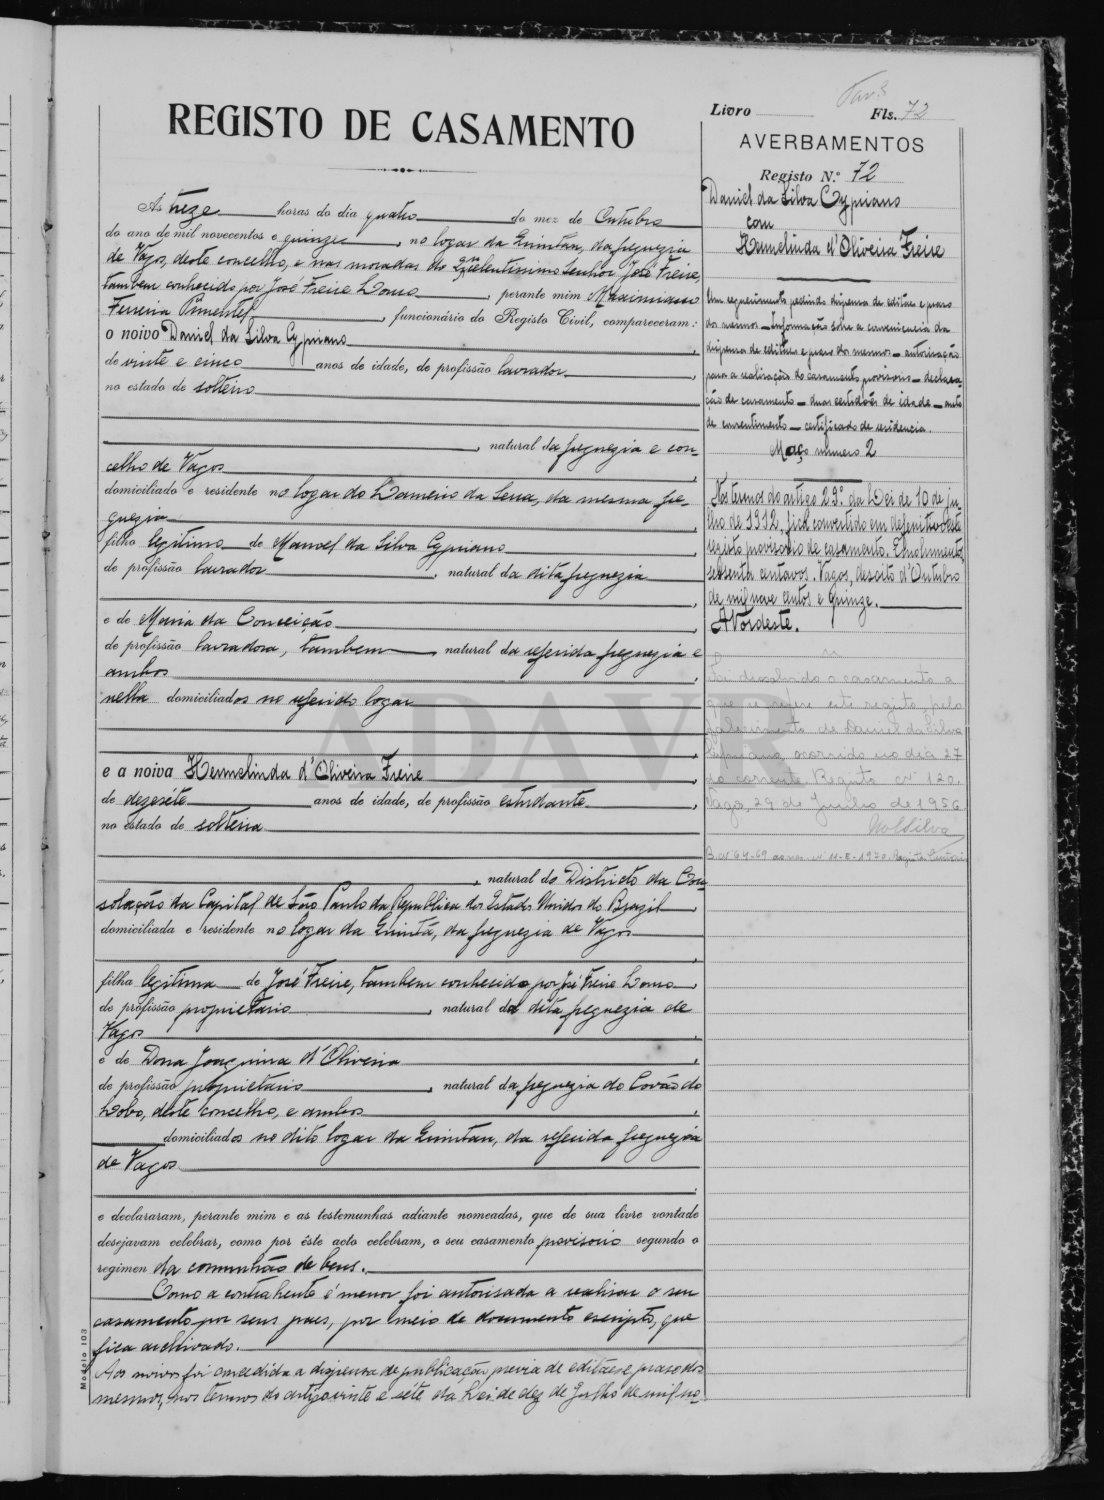 REGISTO DE CASAMENTO
Às treze horas do dia quatro do mez de Outubro
do ano de mil novecentos e quinze, no logar da Quintan, da freguezia
de Vagos, deste concelho, e nas moradas do Excelentissimo Senhor José Freire,
tambem conhecido por José Freire Lomo, perante mim Maximiano
Ferreira Pimentel, funcionário do Registo Civil, compareceram:
o noivo Daniel da Silva Cypriano
de vinte e cinco anos de idade, de profissão lavrador,
no estado de solteiro
, natural da freguezia e con-
celho de Vagos
domiciliado e residente no logar do Lameiro da Serra, da mesma fre-
guezia
filho legitimo de Manoel da Silva Cypriano
de profissão lavrador, natural da dita freguezia
e de Maria da Conceição
de profissão lavradora, tambem natural da referida freguezia e
ambos
nella domiciliados no referido logar
e a noiva Hermelinda d'Oliveira Freire
de dezeséte anos de idade, de profissão estudante,
no estado de solteira
, natural do Districto da Con-
solação da Capital de São Paulo da Republica dos Estados Unidos do Brazil,
domiciliada e residente no logar da Quintã, da freguezia de Vagos
filha legitima de José Freire, tambem conhecido por José Freire Lomo,
de profissão proprietario, natural da dita freguezia de
Vagos
e de Dona Joaquina d'Oliveira
de profissão proprietaria, natural da freguezia do Covão do
Lobo, deste concelho, e ambos
domiciliados no dito logar da Quintan, da referida freguezia
de Vagos
e declararam, perante mim e as testemunhas adiante nomeadas, que de sua livre vontade
desejavam celebrar, como por êste acto celebram, o seu casamento provisorio segundo o
regimen da comunhão de bens.
Como a contrahente é menor foi autorisada a realisar o seu
casamento por seus paes, por meio de documento escripto, que
fica archivado.
Aos noivos foi concedida a dispensa de publicação previa de editaes e prazo dos
mesmos, nos termos do artigo vinte e séte da Lei de dez de Julho de mil no-
Modêlo 103
Livro
Fls. 72
AVERBAMENTOS
Registo N.º 72
Daniel da Silva Cypriano
com
Hermelinda d'Oliveira Freire
Um requerimento pedindo dispensa de editaes e prazo
dos mesmos — Informação sobre a conveniencia da
dispensa de editaes e prazo dos mesmos — autorisação
para a realisação do casamento provisorio — declara-
ção de casamento — duas certidões de idade — auto
de consentimento — certificado de residencia.
Maço numero 2
Nos termos do artigo 29º da Lei de 10 de ju-
lho de 1912, fica convertido em definitivo este
registo provisorio de casamento. Emolumentos,
sessenta centavos. Vagos, desoito d'Outubro
de mil nove centos e quinze.
Foi dissolvido o casamento a
que se refere este registo, pelo
falecimento de Daniel da Silva
Cypriano, ocorrido no dia 27
do corrente. Registo nº 120.
Vagos, 29 de Junho de 1956
ADAVR